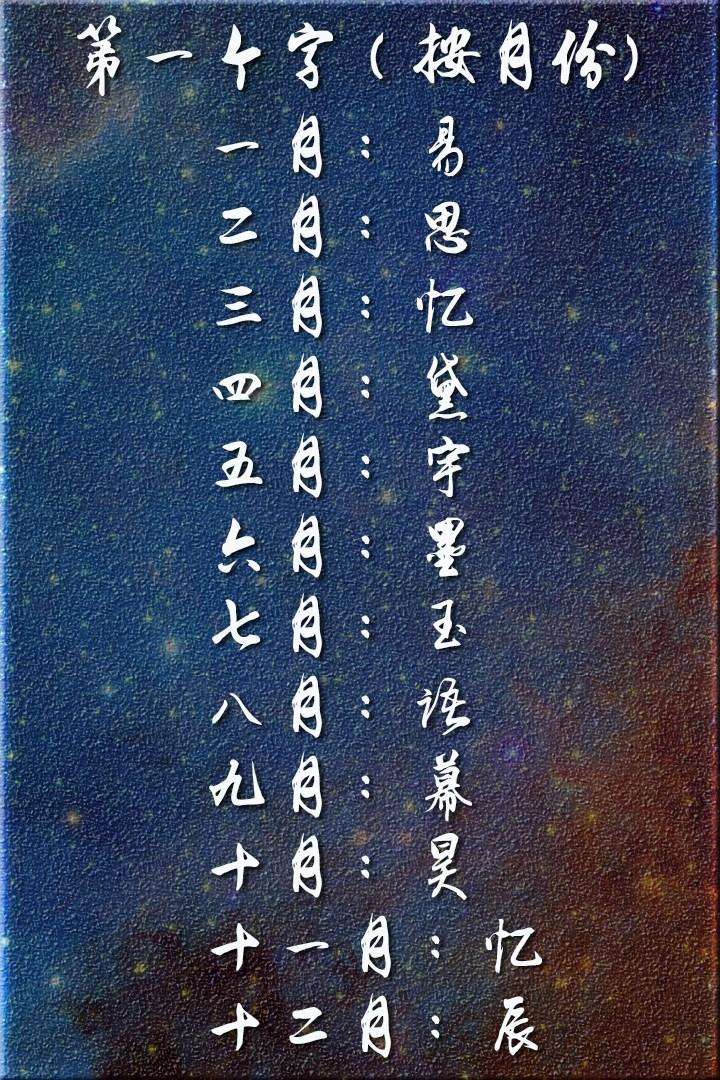 第一个字(按月份)
一月:易
二月:思
三月:忆
四月:黛
五月:宇
六月:墨
七月:玉
八月:语
九月:幕
十月:昊
十一月:忆
十二月:辰